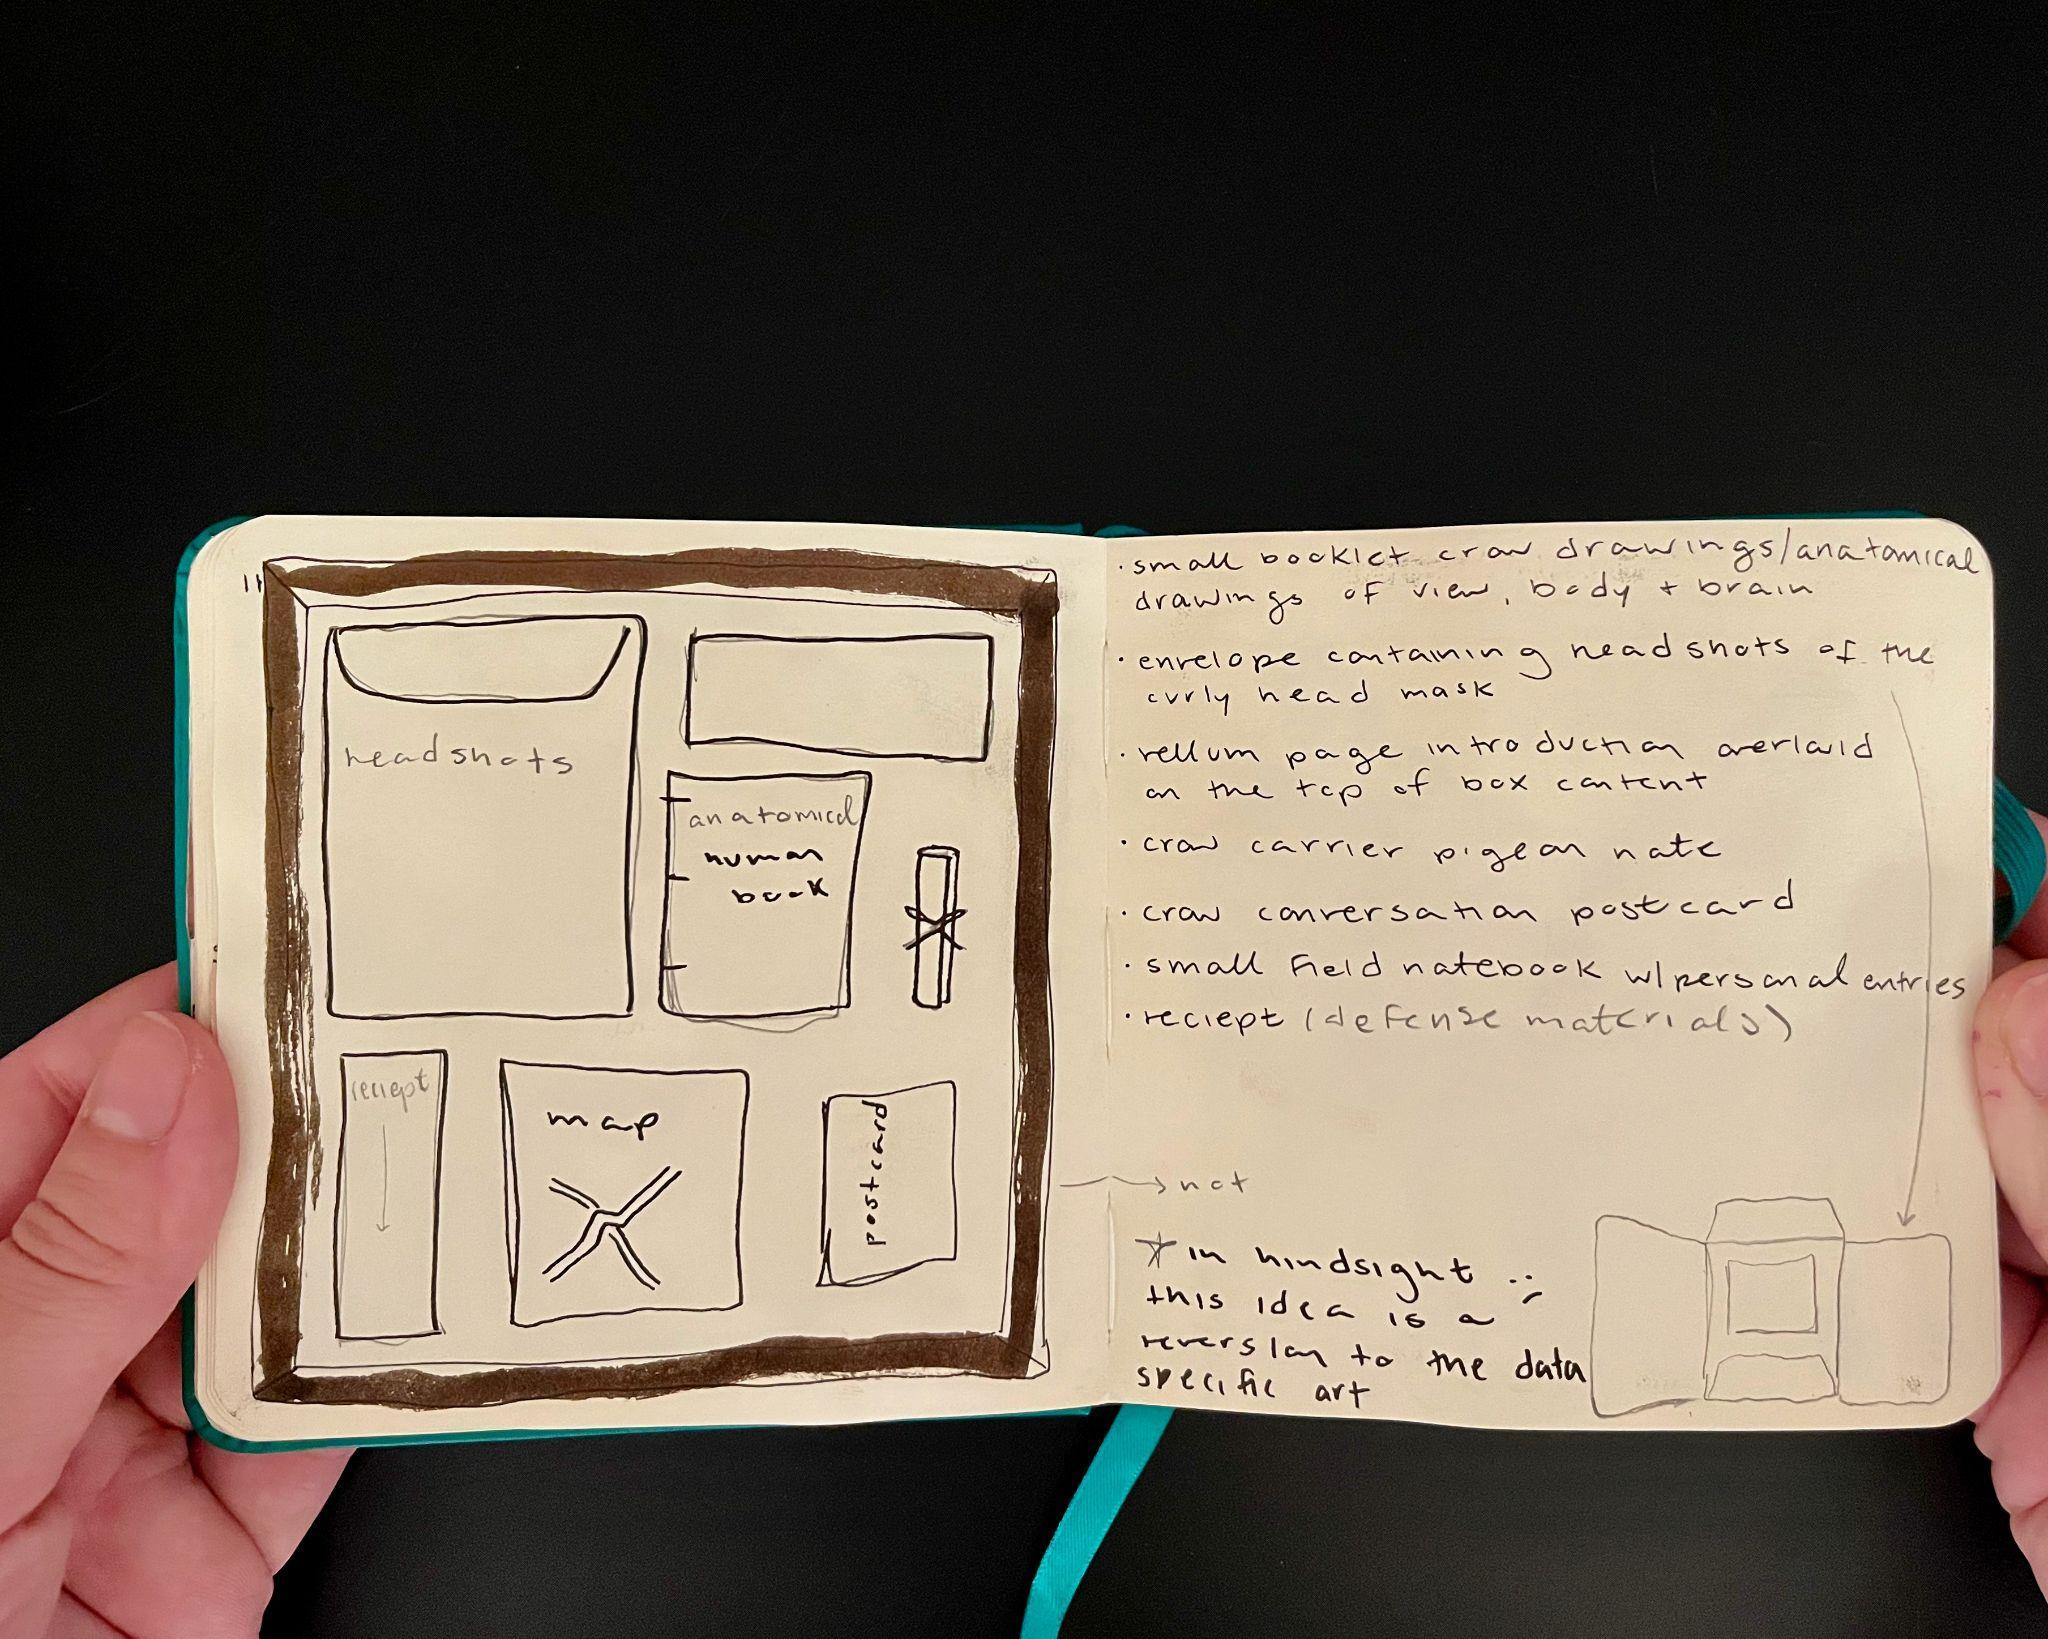 11
headshots
anatomical
human
book
reciept
map
postcard
· small booklet crow drawings/anatomical
drawings of view, body + brain
· envelope containing headshots of the
curly head mask
· vellum page introduction overlaid
on the top of box content
· crow carrier pigeon note
· crow conversation postcard
· small field notebook w/personal entries
· reciept (defense materials)
→ not
☆ in hindsight :(
this idea is a
reversion to the data
specific art